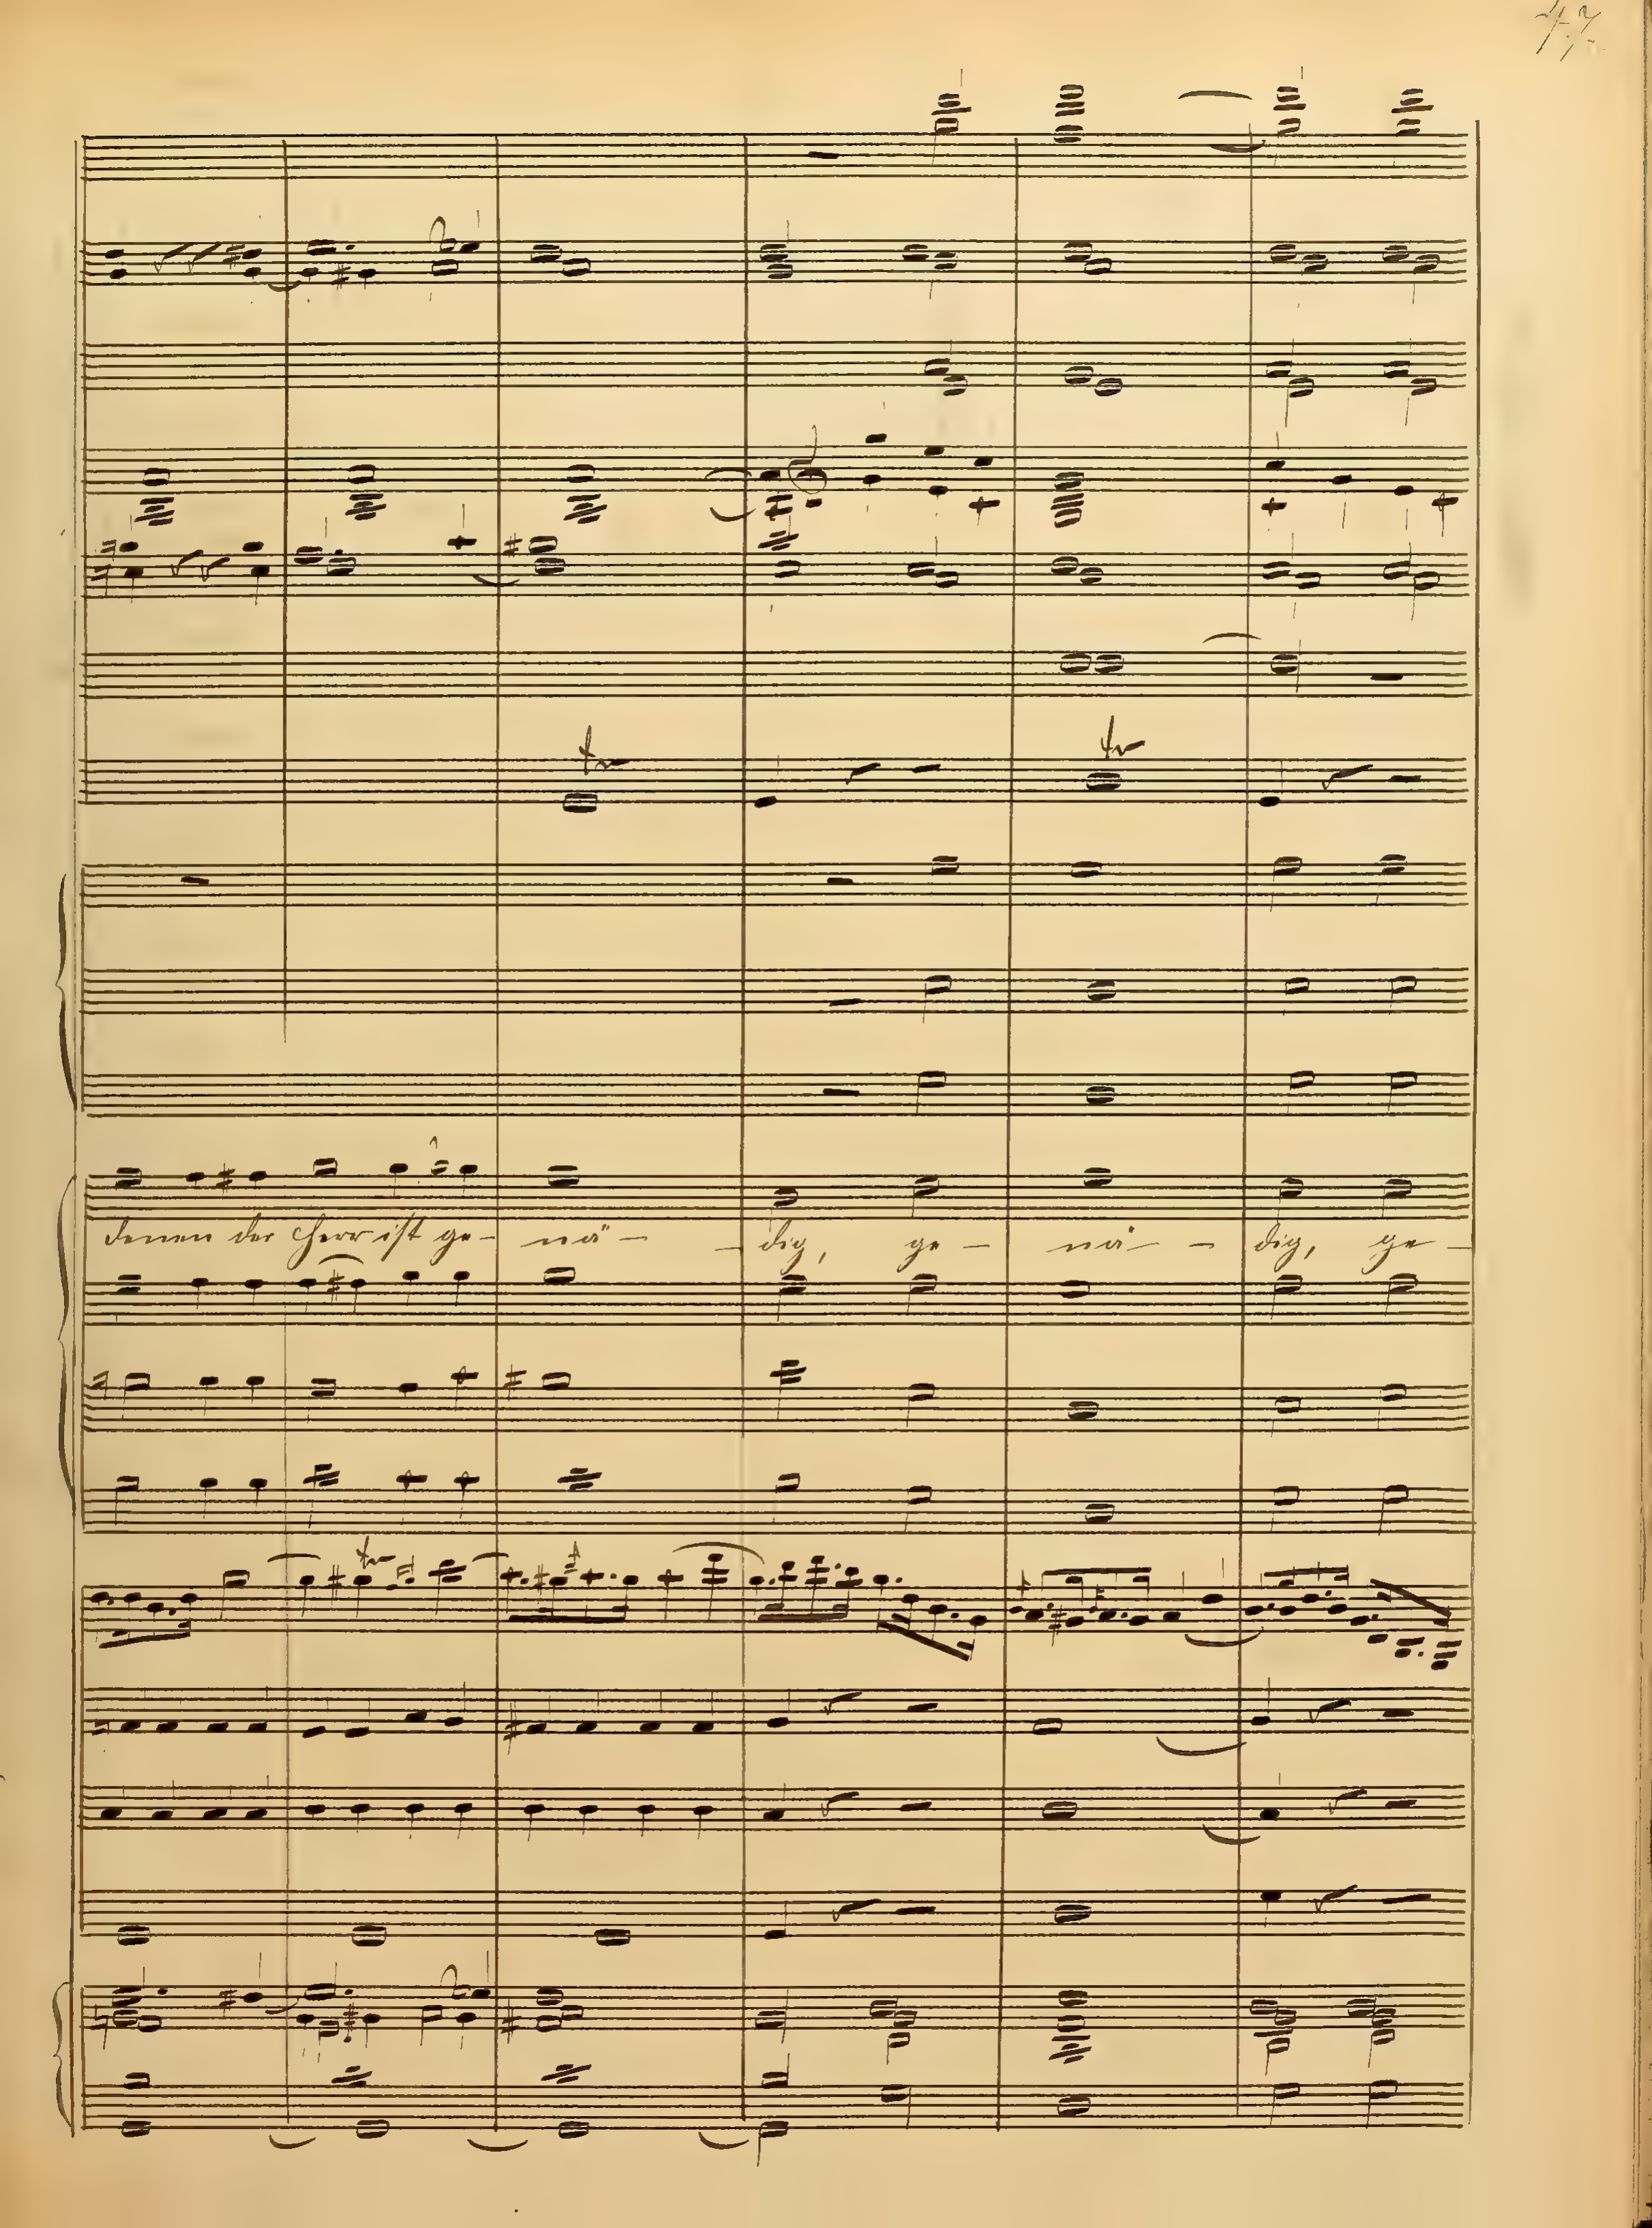 47.
tr
tr
denen der Herr ist ge- nä- - dig, ge- nä- - dig, ge-
tr